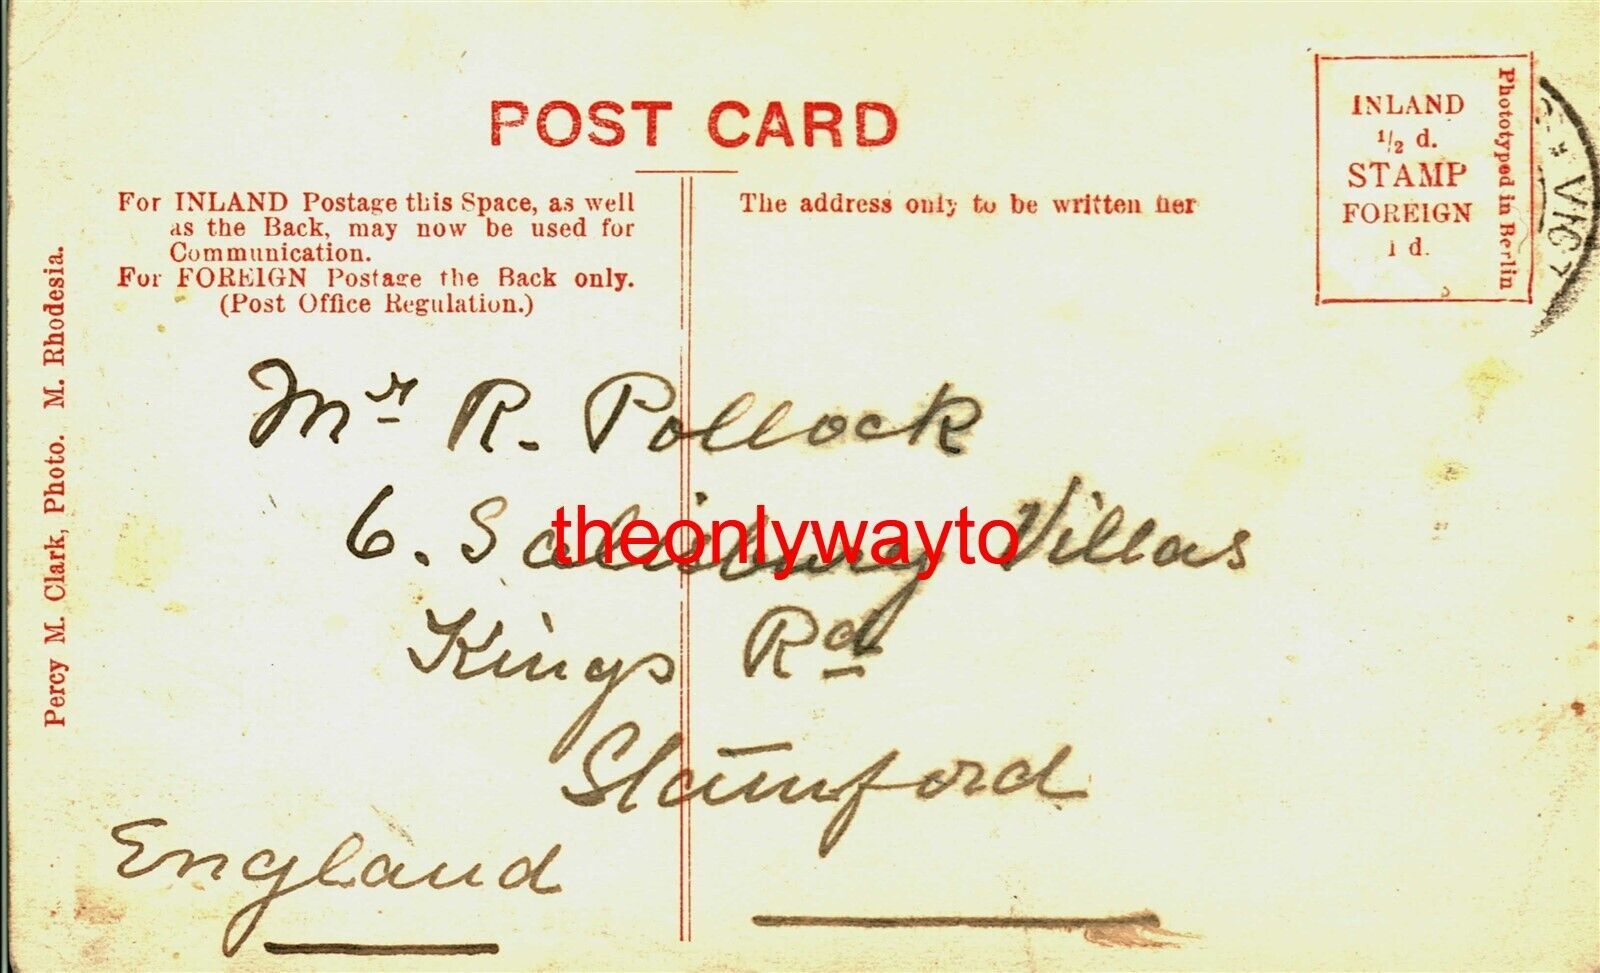 POST CARD
For INLAND Postage this Space, as well
as the Back, may now be used for
Communication.
For FOREIGN Postage the Back only.
(Post Office Regulation.)
The address only to be written her
INLAND
1/2 d.
STAMP
FOREIGN
1 d.
Phototyped in Berlin
VICT
Percy M. Clark, Photo. M. Rhodesia.
Mr R. Pollock
6. Salisbury Villas
theonlywayto
Kings Rd
Stamford
England